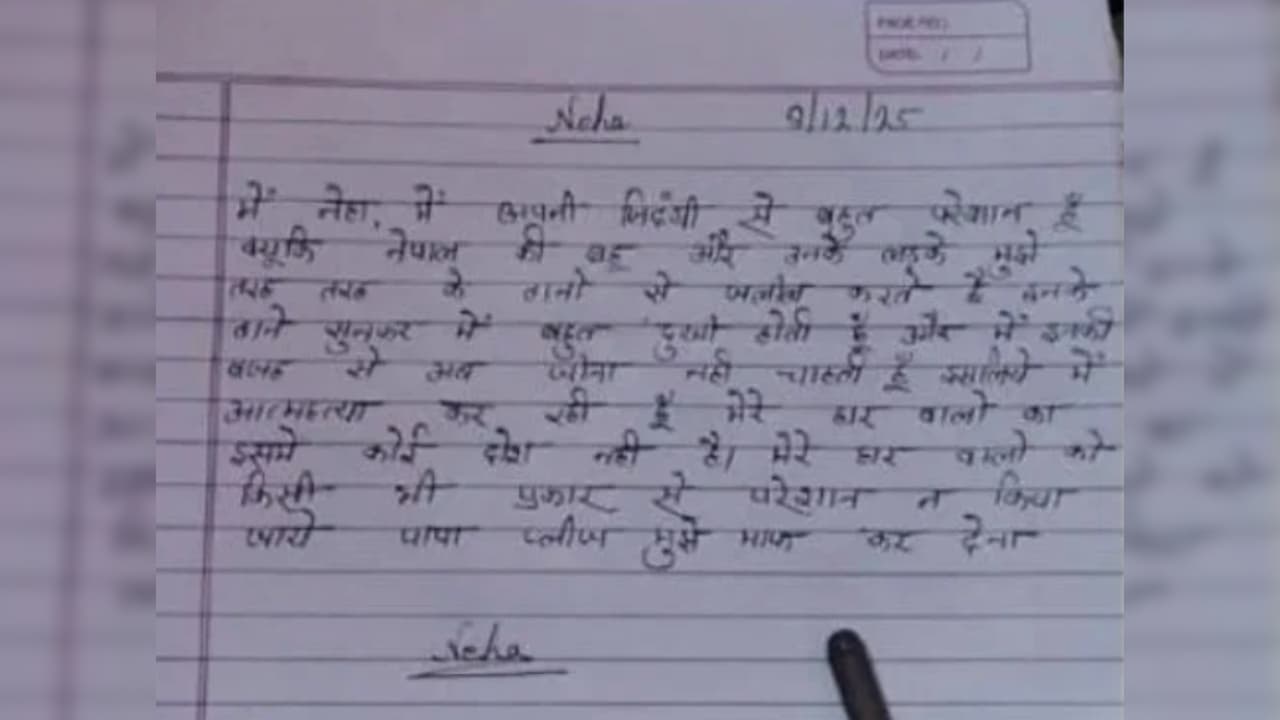 PAGE NO.:
DATE: / /
Neha 9/12/25
में नेहा, में अपनी जिदंगी से बहुत परेशान हूँ
क्यूकि नेपाल की बहू और उनके लड़के मुझे
तरह तरह के तानो से जलील करते हैं इनके
ताने सुनकर में बहुत दुखी होती हूँ और में इनकी
वजह से अब जीना नही चाहती हूँ इसलिये में
आत्महत्या कर रही हूँ मेरे घर वालो का
इसमे कोई दोश नही है। मेरे घर वालो को
किसी भी प्रकार से परेशान न किया
जाये पापा प्लीज मुझे माफ कर देना
Neha